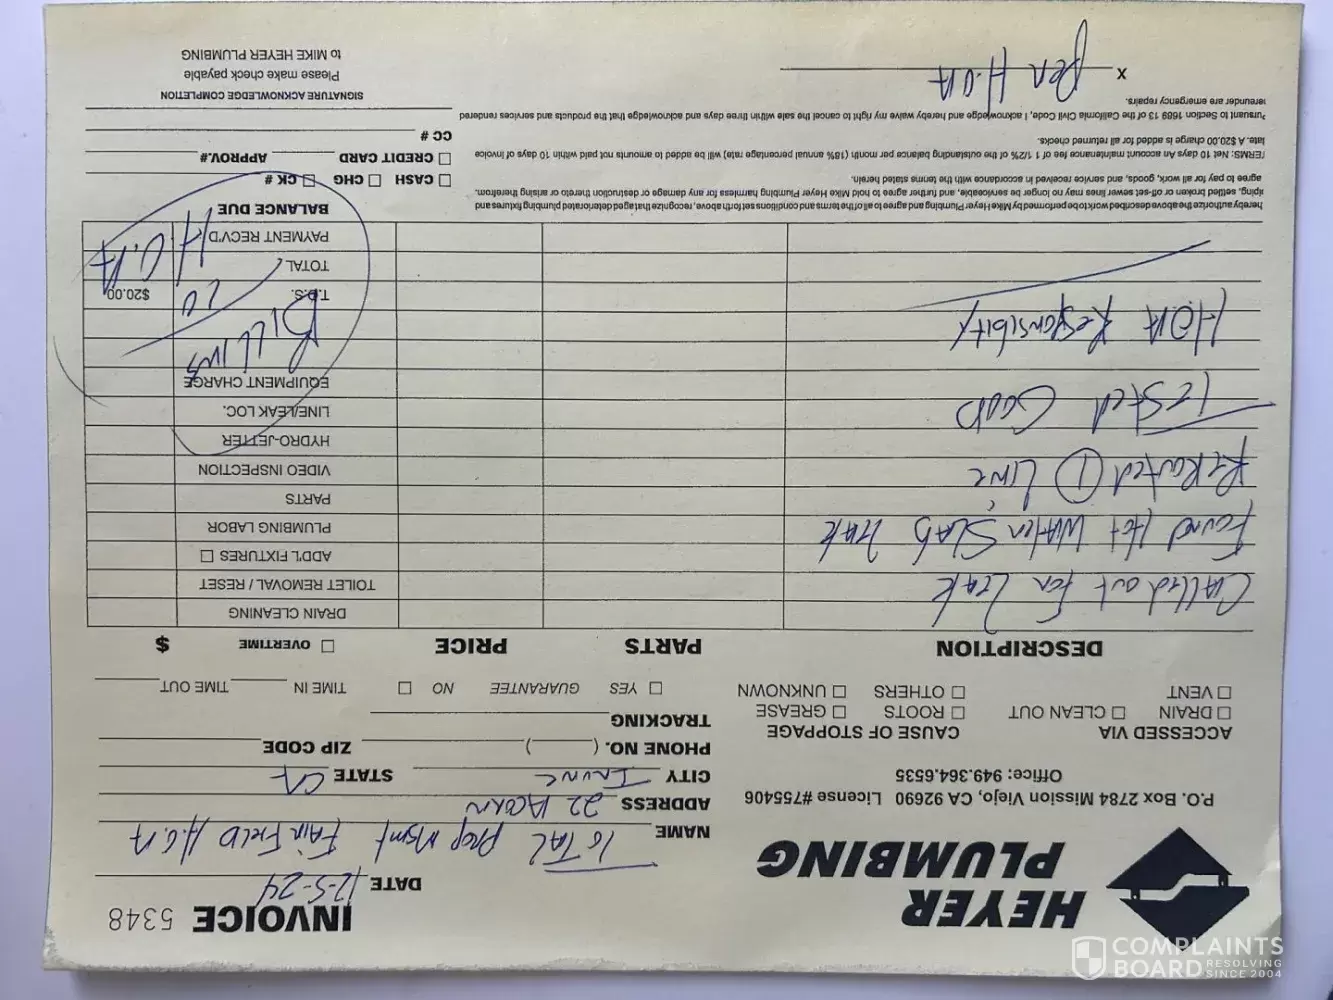 HEYER
PLUMBING
P.O. Box 2784 Mission Viejo, CA 92690 License #755406
Office: 949.364.6535
INVOICE 5348
DATE 12-5-24
NAME TOTAL Prop Mgmt FAIRFIELD H.O.A
ADDRESS 22 ACORN
CITY Irvine STATE CA
PHONE NO. ( ) ZIP CODE
TRACKING
ACCESSED VIA CAUSE OF STOPPAGE
☐ DRAIN ☐ CLEAN OUT ☐ ROOTS ☐ GREASE
☐ VENT ☐ OTHERS ☐ UNKNOWN
☐ YES GUARANTEE NO ☐ TIME IN TIME OUT
DESCRIPTION PARTS PRICE ☐ OVERTIME $
DRAIN CLEANING
Called out for Leak TOILET REMOVAL / RESET
ADD'L FIXTURES ☐
Found Hot Water Slab Leak PLUMBING LABOR
PARTS
Rerouted ① Line VIDEO INSPECTION
HYDRO-JETTER
Tested Good LINE/LEAK LOC.
EQUIPMENT CHARGE
H.O.A Responsibility BILLING
T.D.S. $20.00
TO
TOTAL
H.O.A
PAYMENT REC'D
BALANCE DUE
hereby authorize the above described work to be performed by Mike Heyer Plumbing and agree to all of the terms and conditions set forth above, recognize that aged deteriorated plumbing fixtures and
iping, settled broken or off-set sewer lines may no longer be serviceable, and further agree to hold Mike Heyer Plumbing harmless for any damage or destruction thereto or arising therefrom.
agree to pay for all work, goods, and service received in accordance with the terms stated herein.
TERMS: Net 10 days An account maintenance fee of 1 1/2% of the outstanding balance per month (18% annual percentage rate) will be added to amounts not paid within 10 days of invoice
late. A $20.00 charge is added for all returned checks.
Pursuant to Section 1689 13 of the California Civil Code, I acknowledge and hereby waive my right to cancel the sale within three days and acknowledge that the products and services rendered
hereunder are emergency repairs.
☐ CASH ☐ CHG ☐ CK #
☐ CREDIT CARD APPROV.#
CC #
X Per H.O.A
SIGNATURE ACKNOWLEDGE COMPLETION
Please make check payable
to MIKE HEYER PLUMBING
COMPLAINTS
BOARD RESOLVING
SINCE 2004